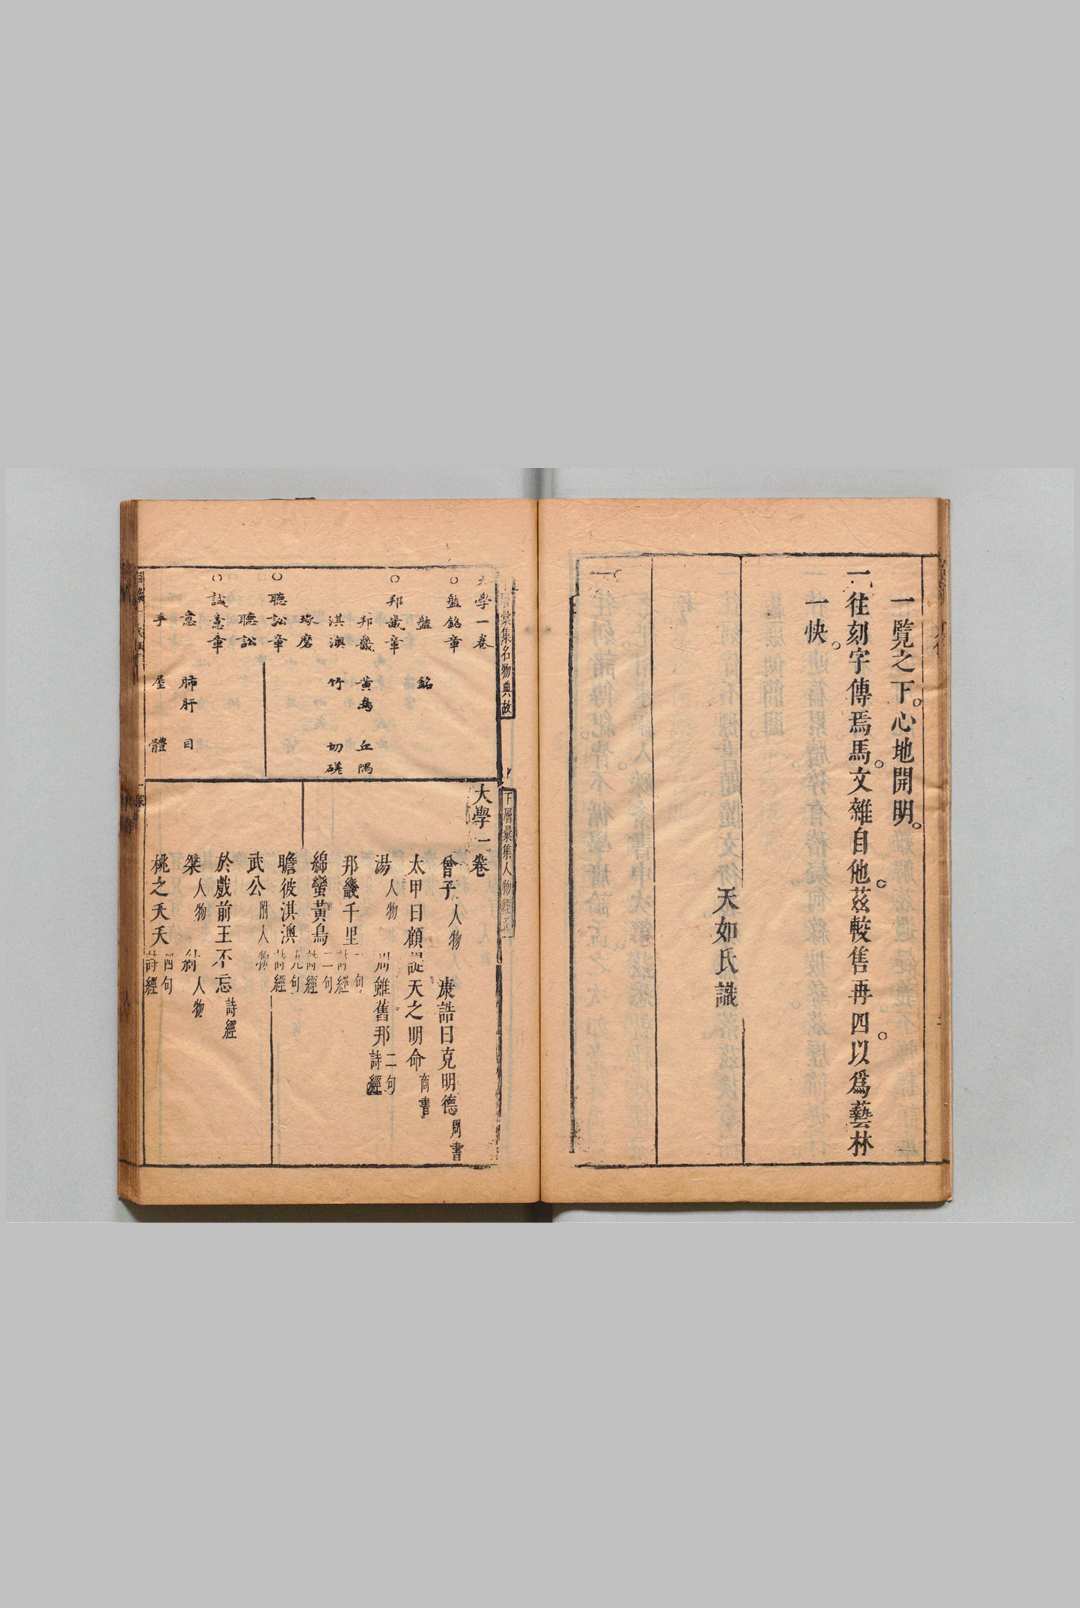 一覽之下。心地開明。
一往刻字傳焉馬。文雜自他。茲較售再四。以爲藝林
一快。
天如氏識
彙集名物典故
大學一卷
○盤銘章
盤 銘
○邦畿章
邦畿 黃鳥 丘隅
淇澳 竹 切磋
琢磨
○聽訟章
聽訟
○誠意章
意 肺肝 目
手 屋 體
下層彙集人物
大學一卷
曾子人物 康誥曰克明德周書
太甲曰顧諟天之明命商書
湯人物 周雖舊邦二句詩經
邦畿千里二句詩經
緡蠻黃鳥二句詩經
瞻彼淇澳九句詩經
武公附人物
於戲前王不忘詩經
桀人物 紂人物
桃之夭夭四句詩經